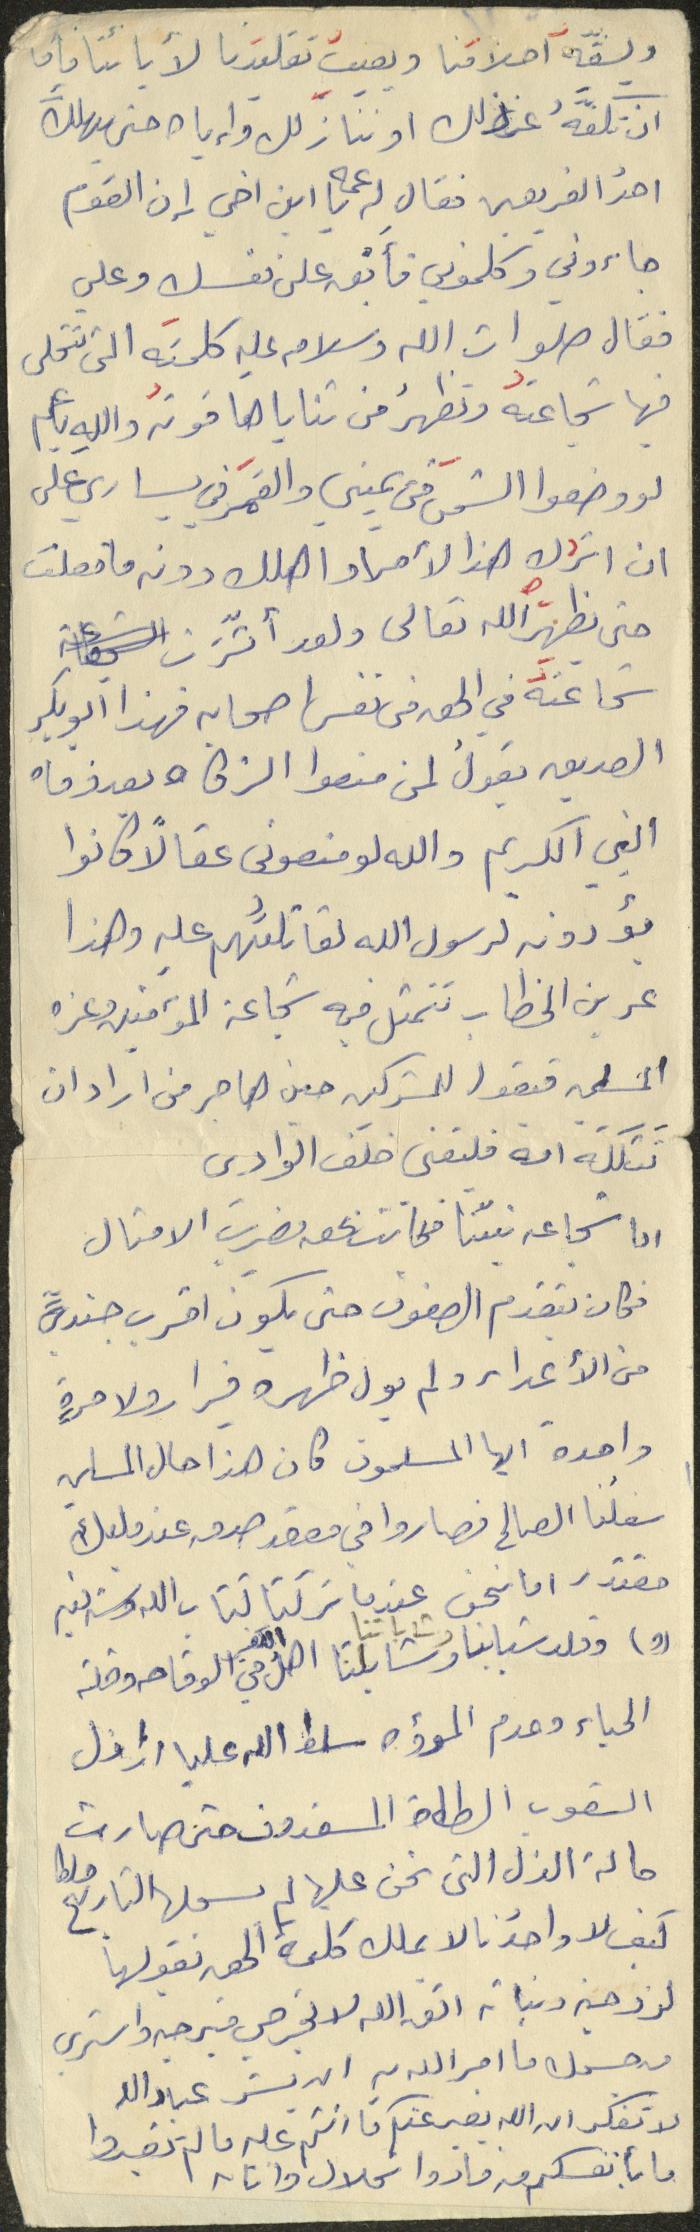 ويسفّه أحلامنا ويعيبُ تقليدنا لأبائنا فإما
ان تكفَّهُ عن ذلك او ننازلك وإياه حتى يهلك
احدُ الفريقين فقال له عمه يا ابن اخي إن القوم
جاءوني وكلموني فأبقِ على نفسك وعلي
فقال صلوات الله وسلامه عليه كلمته التى تتجلى
فيها شجاعتهُ وتظهرُ من ثنايا ها قوتهُ والله يا عم
لو وضعوا الشمسَ في يميني والقمرَ في يساري على
ان اتركَ هذا الأمر او اهلك دونه ما فعلت
حتى يظهرَه الله تعالى ولقد أثَّرت
شجاعتهُ في الحق في نفس اصحابه فهذا ابو بكر
الصديق يقولُ لمن منعوا الزكاة بعد وفاة
النبي الكريم والله لو منعونى عقالاً كانوا
يؤدونه لرسول الله لقاتلتُهم عليه وهذا
عمر بن الخطاب تتمثل فيه شجاعة المؤمنين وعزة
المسلمين فيقول للمشركين حين هاجر من اراد ان
تَثكلَهَ امه فليلقنى خلف الوادى
اما شجاعة نبيّنا فكانت بحق مضربَ الامثال
فكان يتقدم الصفوف حتى يكون اقرب جنديٍّ
من الأعداء ولم يول ظهره فرارا ولا مرةٍ
واحدة ايها المسلمون كان هذا حال المسلمين
سلفُنا الصالح فصاروا في مقعد صدق عند مليك
مقتدر اما نحن عندما تركنا كتاب الله وسنة نبيه
(و) وقلد شبابنا وشاباتنا اهل الكفر في الوقاحه وقلة
الحياء وعدم المروؤه سلط الله علينا ارذل
الشعوب الطغاة المفسدون حتى صارت
حالة الذل التى نحن عليها لم يسجلها التاريخ
كيف لا واحدُنا لا يملك كلمةَ الحق يقولها
لزوجته وبناته اتق الله لا تخرجي متبرجه واستري
من جسمك ما امر الله به ان يستر عباد الله
لا تفكر ان الله يغير عنكم ما انتم عليه ما لم تغيروا
ما بأنفسكم من